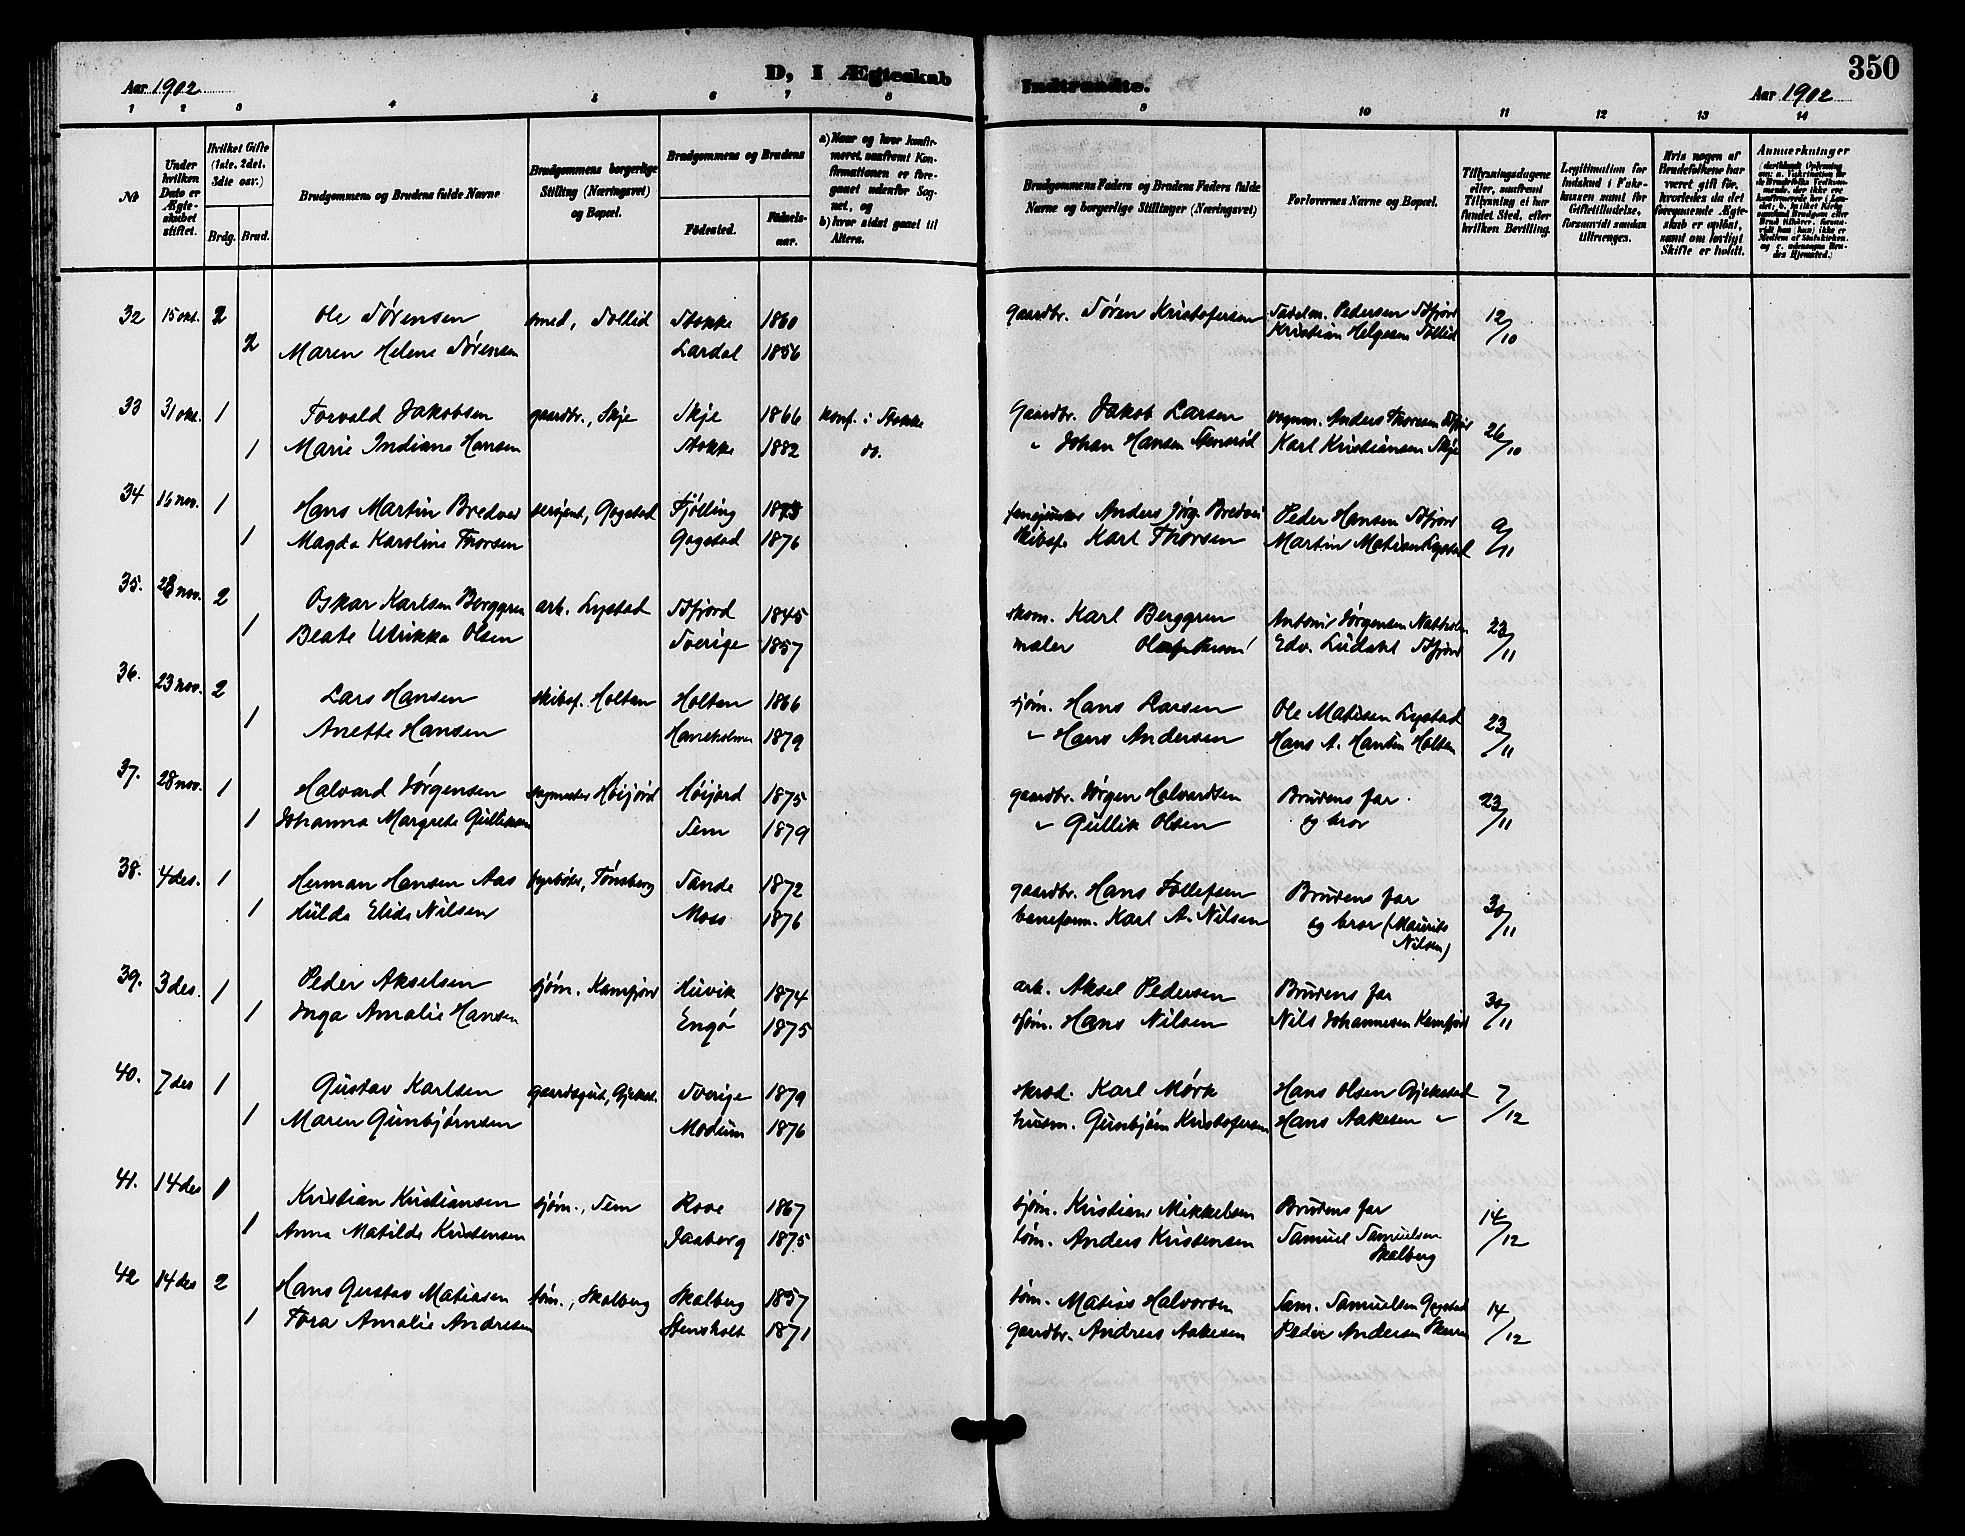 350
Aar 1902
D, I Ægteskab
Indtraadte.
Aar 1902
1 2 3 4 5 6 7 8 9 10 11 12 13 14
№
Under hvilken Dato er Ægteskabet stiftet.
Hvilket Gifte (1ste. 2det. 3die osv.)
Brdg. Brud.
Brudgommens og Brudens fulde Navne
Brudgommens borgerlige Stilling (Næringsvei) og Bopæl.
Brudgommens og Brudens
Fødested.
Fødselsaar.
a) Naar og hvor konfirmeret, saafremt Konfirmationen er foregaaet udenfor Sognet, og
b) hvor sidst gaaet til Alters.
Brudgommens Faders og Brudens Faders fulde Navne og borgerlige Stillinger (Næringsvei)
Forlovernes Navne og Bopæl.
Tillysningsdagene eller, saafremt Tillysning ei har fundet Sted, efter hvilken Bevilling.
Legitimation for Indskud i Enkekassen samt for Giftetilladelse, forsaavidt saadan tiltrænges.
Hvis nogen af Brudefolkene har været gift før, hvorledes da det foregaaende Ægteskab er opløst, samt om lovligt Skifte er holdt.
Anmærkninger
32 15 okt. 2 Ole Sørensen smed, Sollid Stokke 1860 gaardbr. Søren Kristofersen Pedersen 12/10
2 Maren Helene Sørensen Lardal 1856 Kristian Helgesen Sollid
33 31 okt. 1 Torvald Jakobsen gaardbr., Skje Skje 1866 konf. i Stokke Gaardbr. Jakob Larsen vognm. Anders Thoresen 26/10
1 Marie Indiane Hansen Stokke 1882 do. " Johan Hansen Karl Kristiansen Skje
34 16 nov. 1 Hans Martin Bredvei sersjent, Gogstad Fjølling Anders Jørg. Bredvei Peder Hansen 9/11
1 Magda Karoline Thorsen Gogstad 1876 skibsf. Karl Thorsen Martin Lystad
35. 23 nov. 2 Oskar Karlsen Berggren arb. Lystad Sfjord 1845 skom. Karl Berggren Antoni Jørgensen 23/11
1 Beate Ulrikka Olsen Sverige 1857 maler Edv.
36. 23 nov. 2 Lars Hansen skibsf. Holtan Holtan 1866 sjøm. Hans Larsen Ole Matisen Lystad 23/11
1 Anette Hansen Haneholmen 1879 " Hans Andersen Hans A. Hansen Holtan
37. 28 nov. 1 Halvard Jørgensen Høijord Høijord 1875 gaardbr. Jørgen Halvardsen Brudens far 23/11
1 Johanna Margrete Gulliksen Sem 1879 " Gullik Olsen og bror
38. 4 des. 1 Herman Hansen Aas fyrbøter, Tønsberg Sande 1872 gaardbr. Hans Tollefsen Brudens far 30/11
1 Hulda Elida Nilsen Moss 1876 baneform. Karl A. Nilsen og bror (Maurits
Nilsen)
39. 3 des. 1 Peder Akselsen sjøm. Kamfjord Huvik 1874 arb. Aksel Pedersen Brudens far 30/11
1 Inga Amalie Hansen Engø 1875 sjøm. Hans Nilsen Nils Johannesen Kamfjord
40. 7 des 1 Gustav Karlsen gaardsgut, Gjekst. Sverige 1879 skræd. Karl Mørk Hans Olsen Gjekstad 7/12
1 Maren Gunbjørnsen Modum 1876 husm. Gunbjørn Kristofersen Hans Aakesen "
41. 14 des 1 Kristian Kristiansen sjøm., Sem Rove 1867 sjøm. Kristian Mikkelsen Brudens far 14/12
1 Anna Matilde Kristensen Jaaberg 1875 tøm. Anders Kristensen Samuel Samuelsen
Skalberg
42 14 des 2 Hans Gustav Matiasen tøm., Skalberg Skalberg 1857 tøm. Matias Halvorsen Sam. Samuelsen Gogstad 14/12
1 Tora Amalie Andresen Stensholt 1871 gaardbr. Andreas Aakesen Peder Andersen